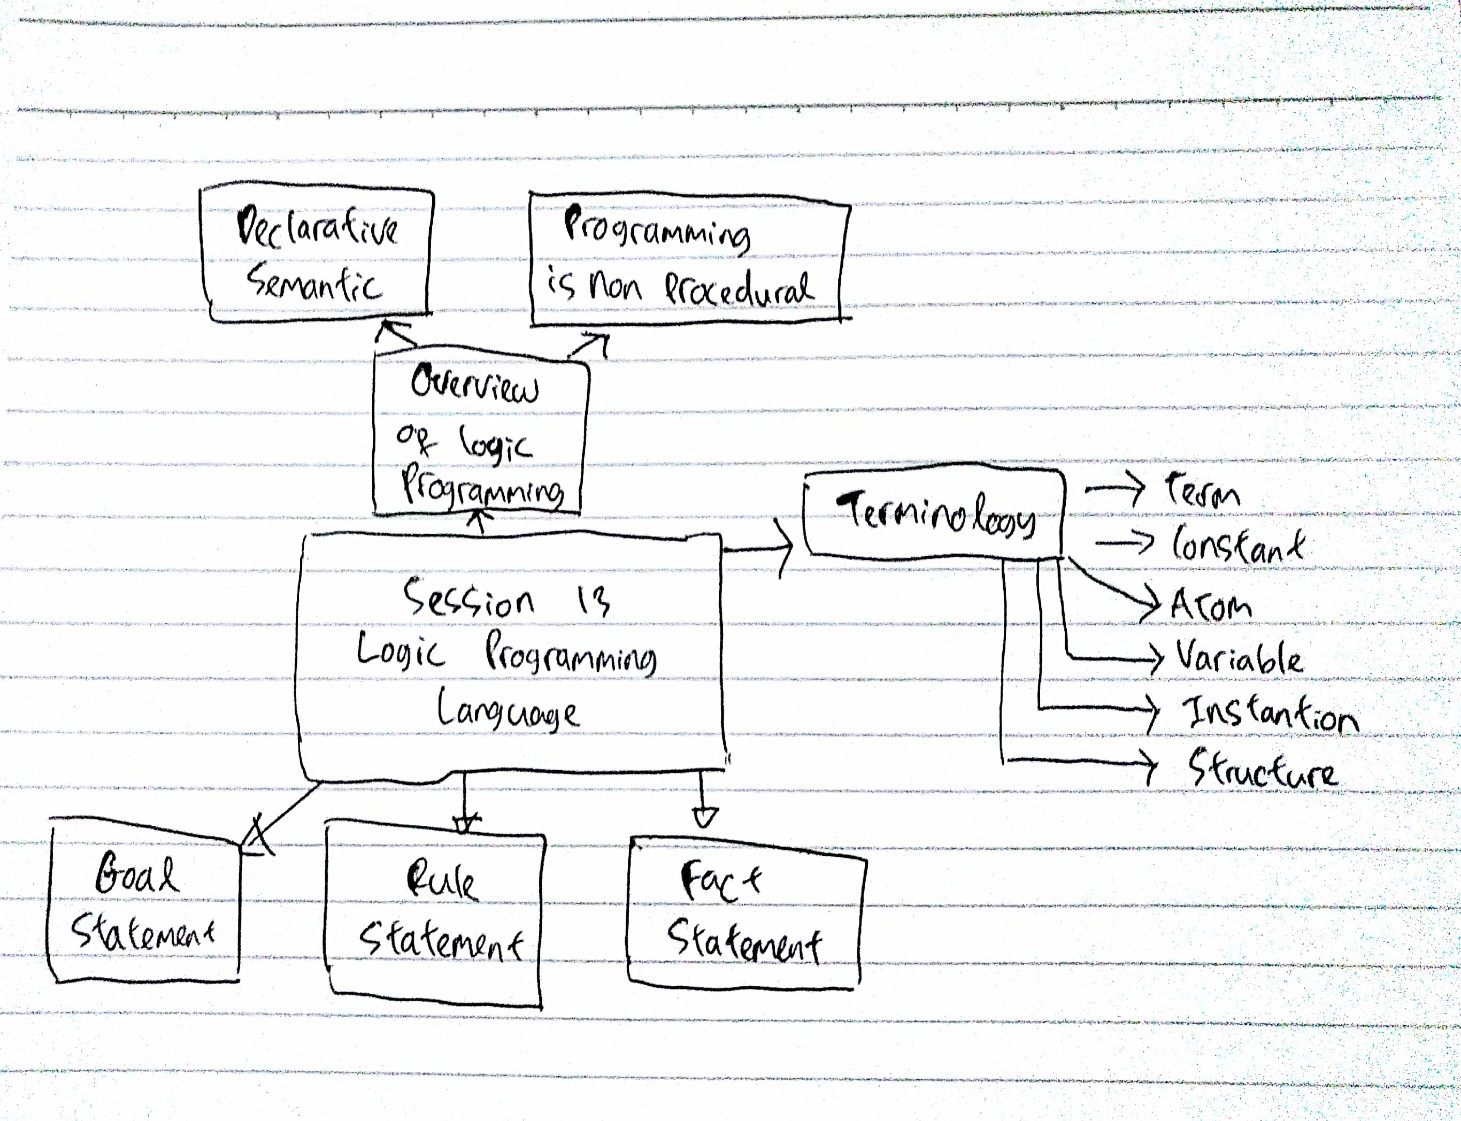 Declarative
Semantic
Programming
is non Procedural
Overview
of logic
Programming
Terminology
Term
Constant
Atom
Variable
Instantion
Structure
Session 13
Logic Programming
Language
Goal
Statement
Rule
Statement
Fact
Statement